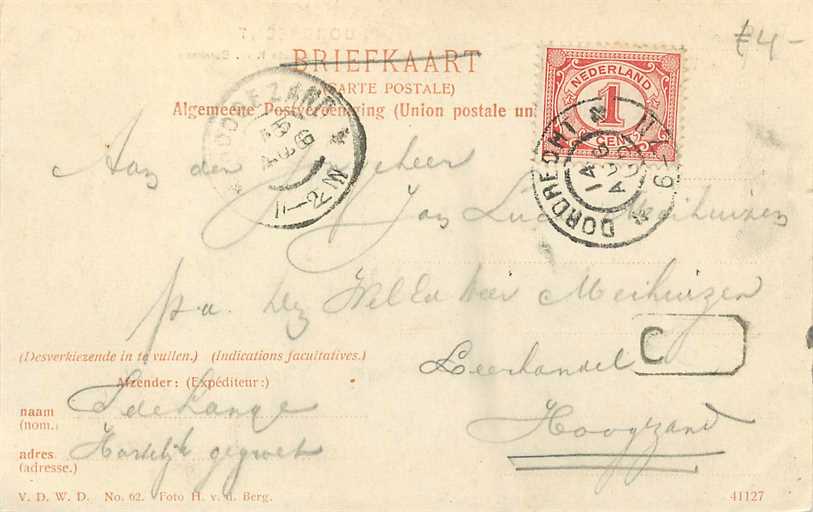 £4-
BRIEFKAART
(CARTE POSTALE)
Algemeene Postvereeniging (Union postale un
NEDERLAND
1
CENT
HOOGEZAND
1-2N
DORDRECHT
Aan den Jongeheer
Jan Lud. Meihuizen
p.a. Meihuizen
Leerhandel
C
Hoogezand
(Desverkiezende in te vullen.) (Indications facultatives.)
Afzender: (Expéditeur:)
naam
(nom.)
S de Lange
adres
(adresse.)
Hartelijk gegroet
V. D. W. D. No. 62. Foto H. v. d. Berg.
41127